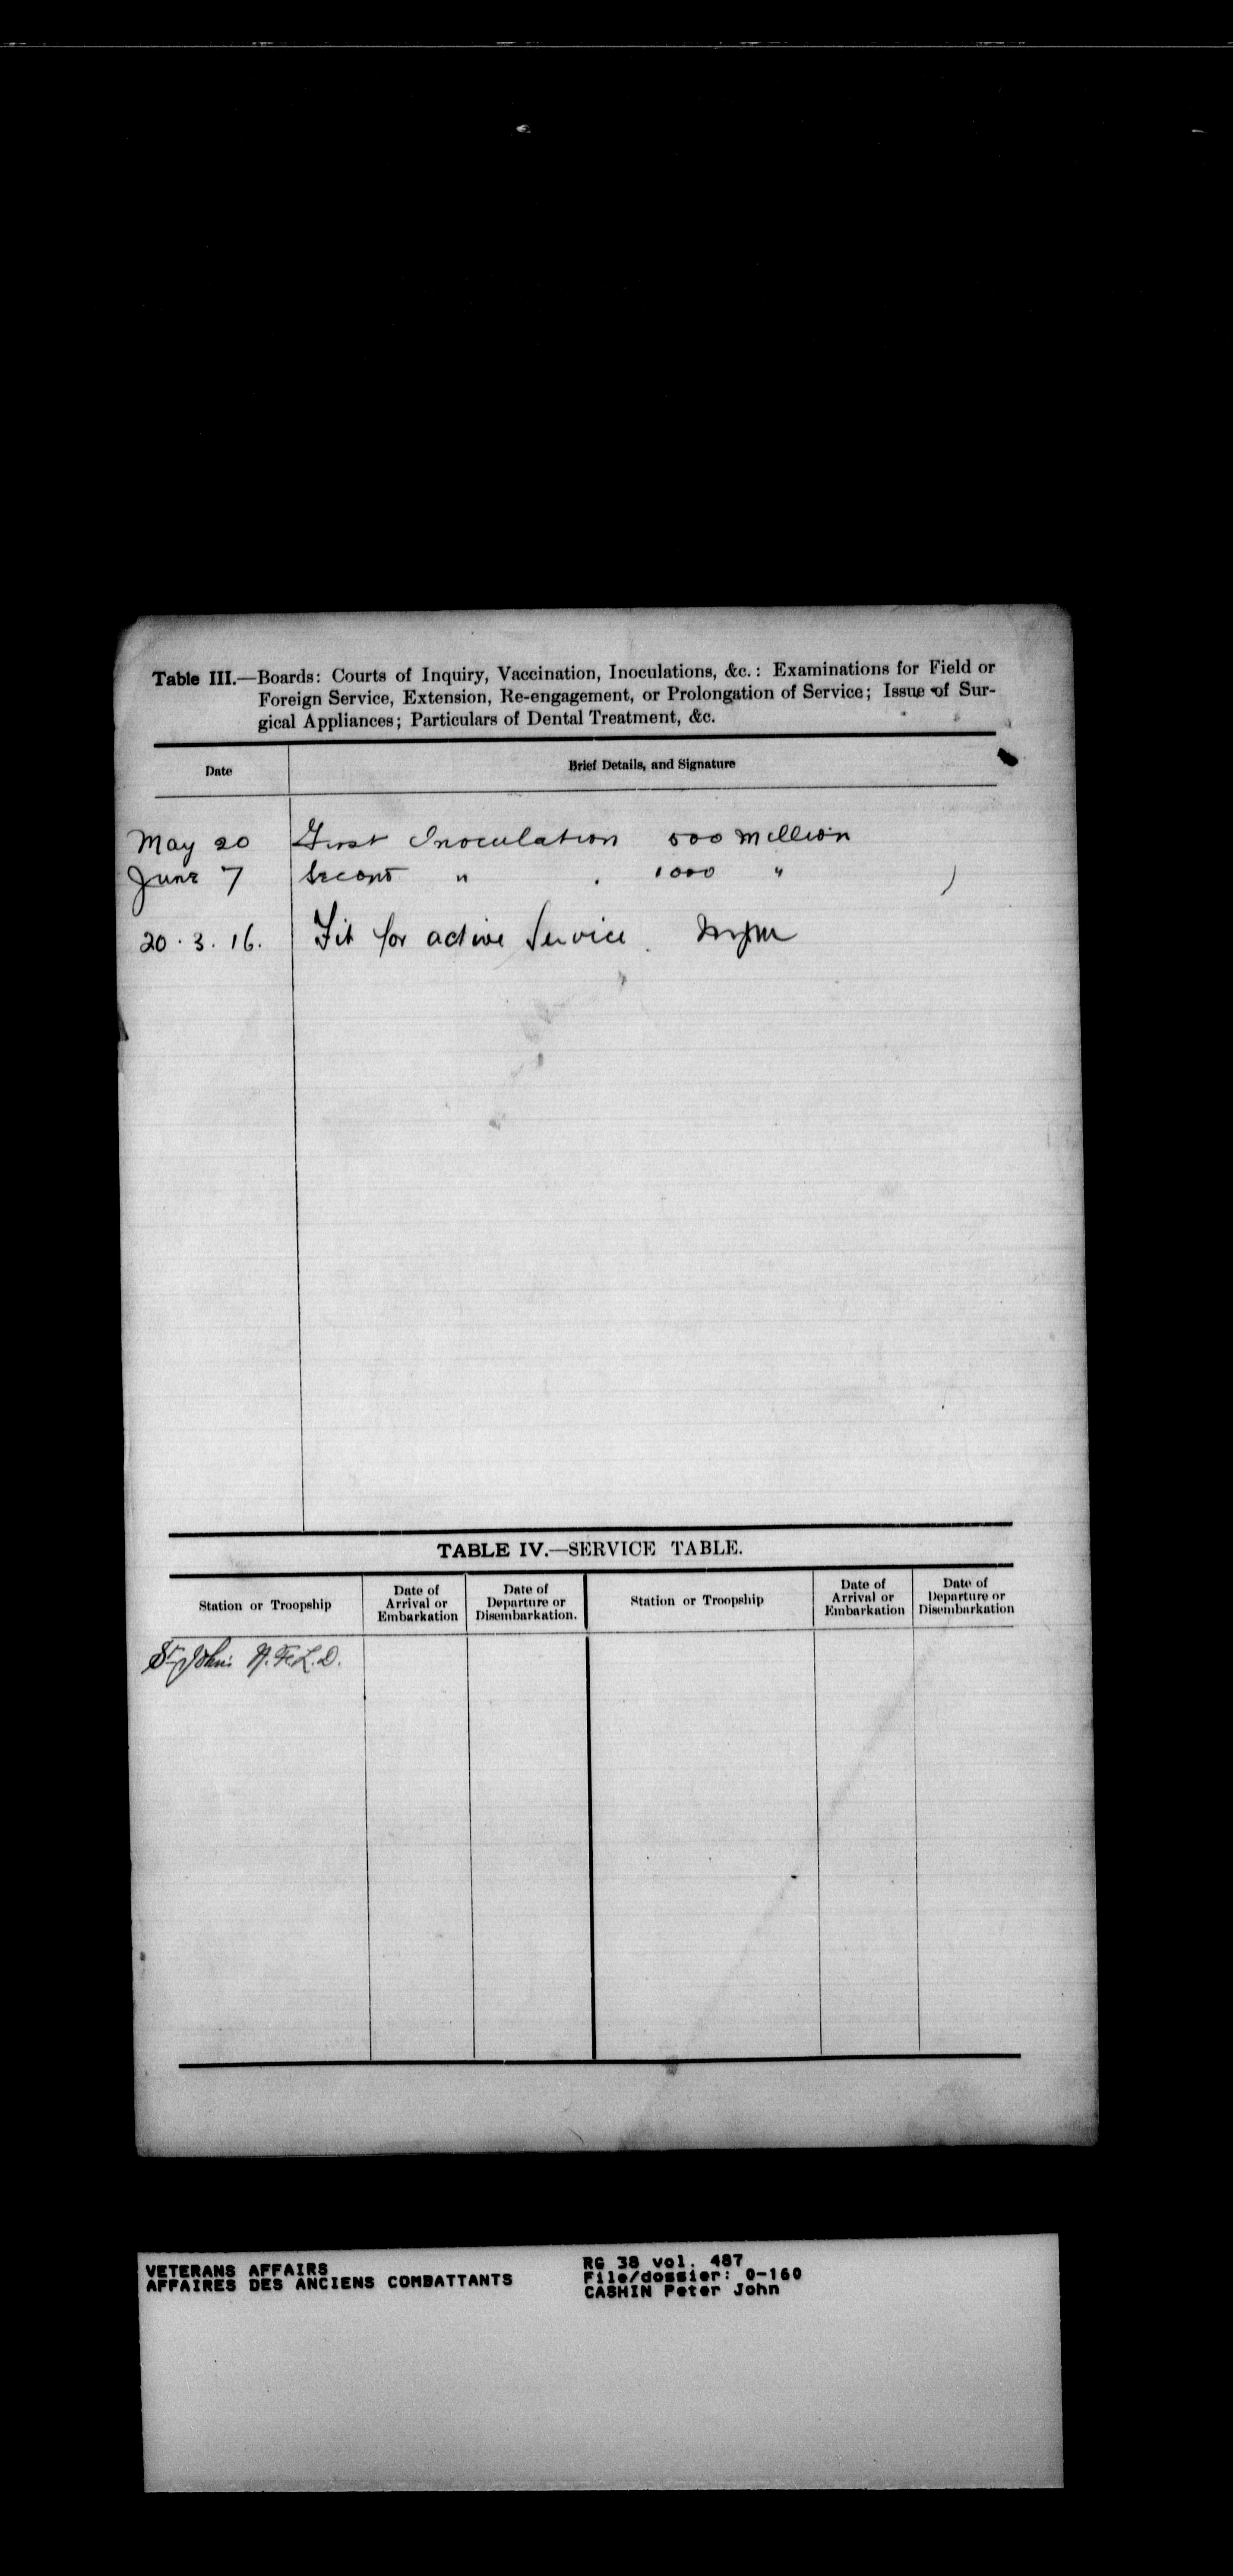 Table III.—Boards: Courts of Inquiry, Vaccination, Inoculations, &c.: Examinations for Field or
Foreign Service, Extension, Re-engagement, or Prolongation of Service; Issue of Sur-
gical Appliances; Particulars of Dental Treatment, &c.
Date Brief Details, and Signature
May 20 First Inoculation 500 million
June 7 Second " 1000 "
20.3.16. Fit for active Service.
TABLE IV.—SERVICE TABLE.
Station or Troopship Date of Arrival or Embarkation Date of Departure or Disembarkation. Station or Troopship Date of Arrival or Embarkation Date of Departure or Disembarkation
St John's N.F.L.D.
VETERANS AFFAIRS RG 38 vol. 487
AFFAIRES DES ANCIENS COMBATTANTS File/dossier: 0-160
CASHIN Peter John